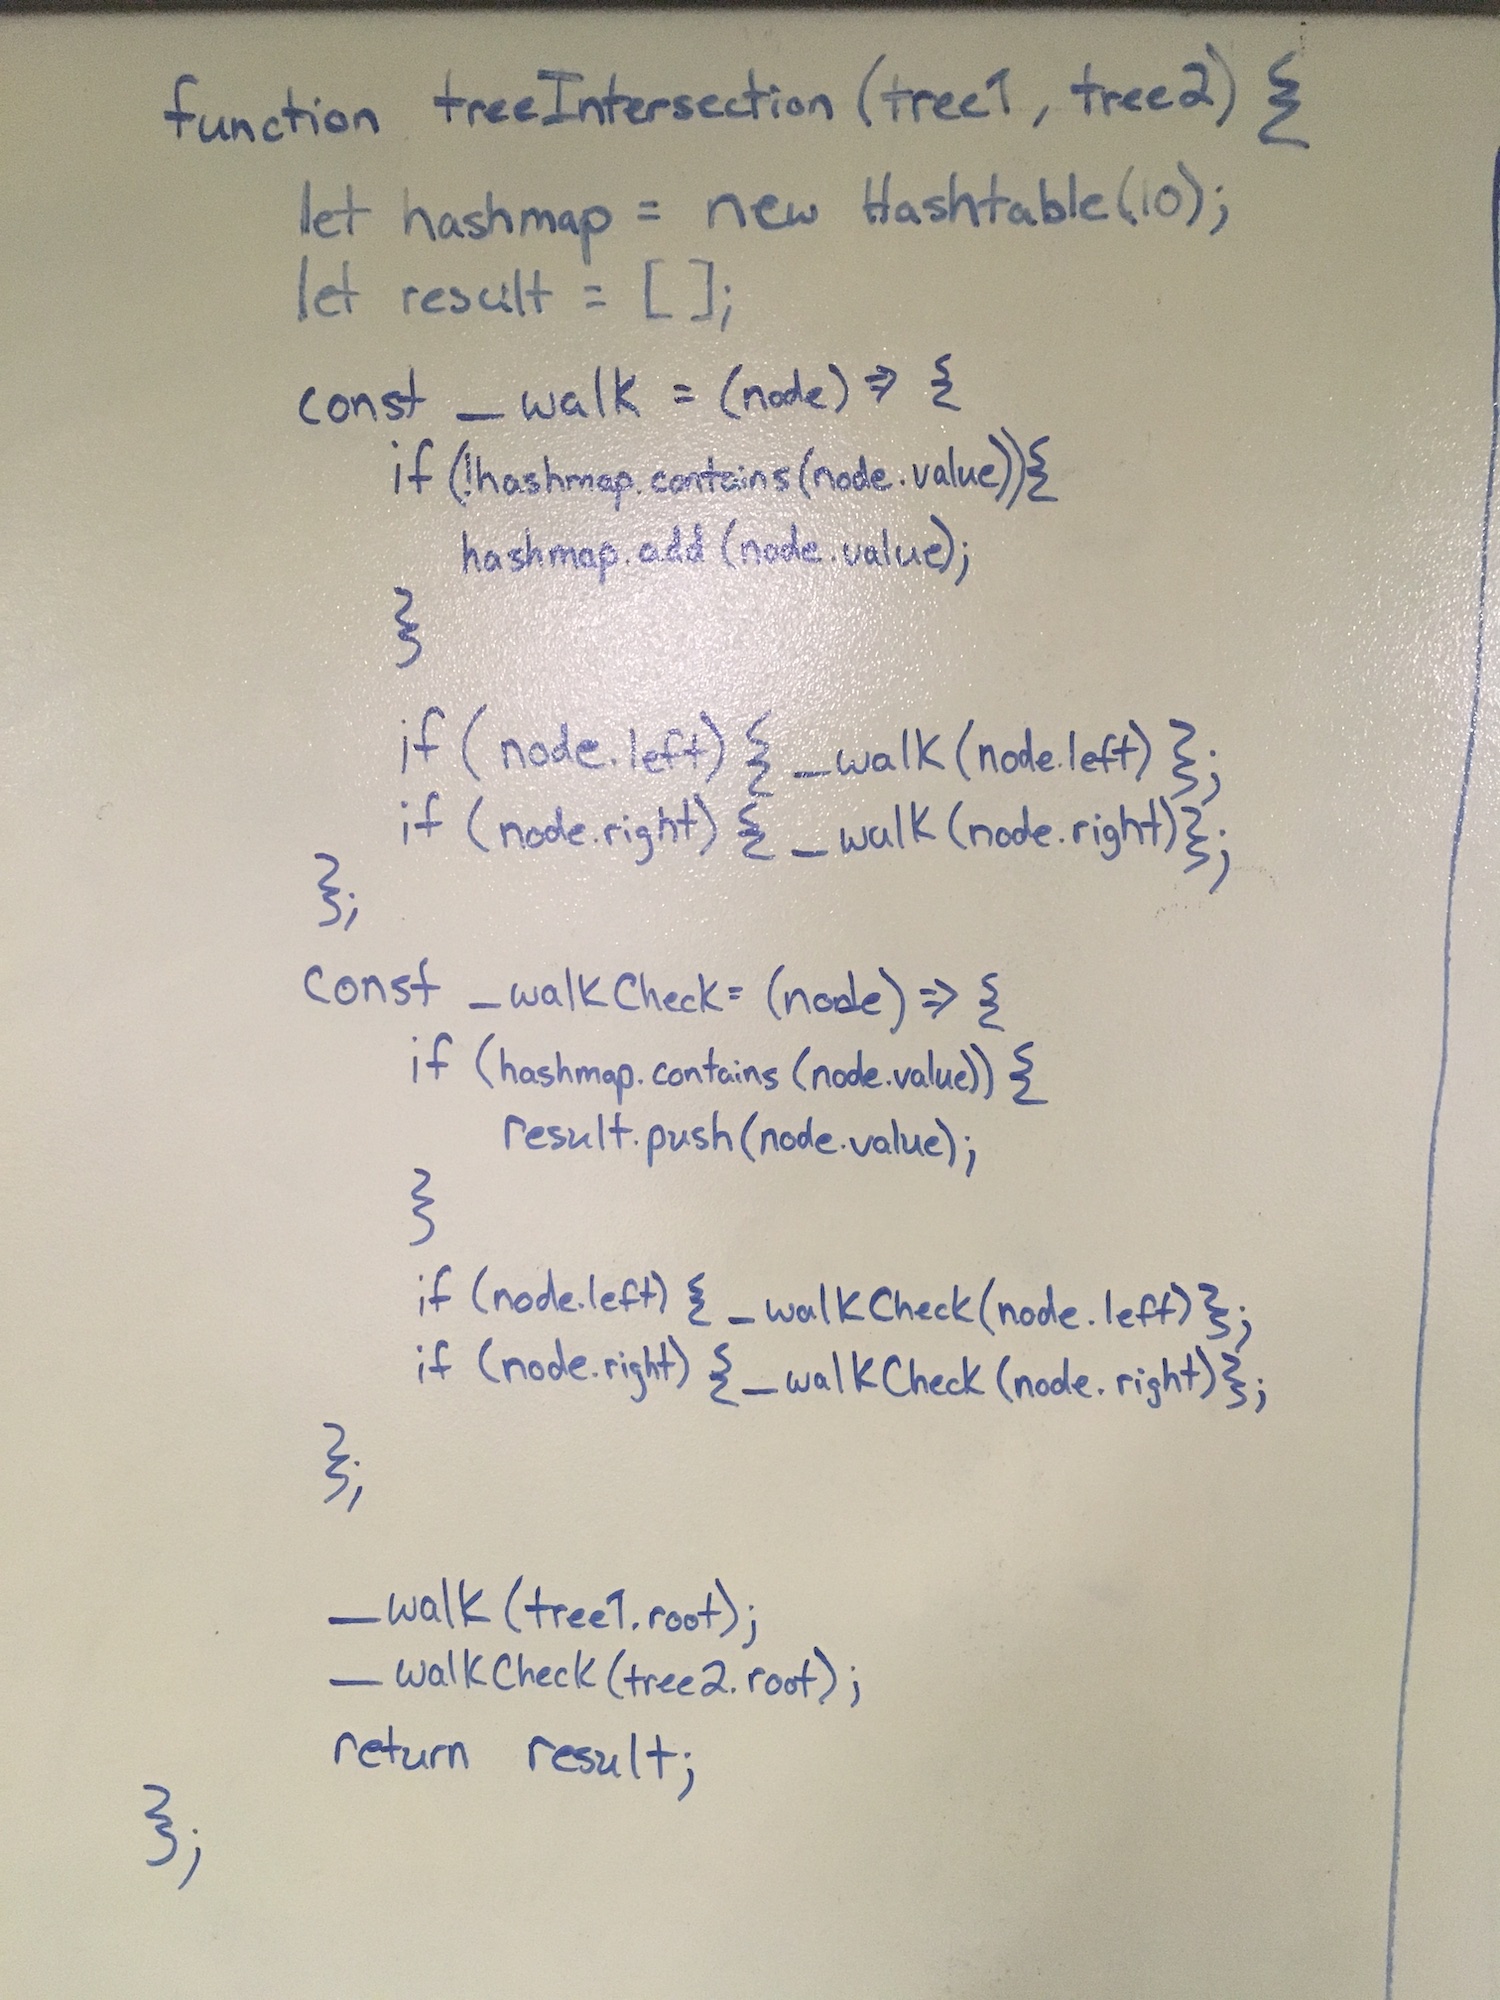 function treeIntersection (tree1, tree2) {
let hashmap = new Hashtable(10);
let result = [ ];
const _walk = (node) => {
if (!hashmap.contains(node.value)){
hashmap.add(node.value);
}
if (node.left) { _walk(node.left) };
if (node.right) { _walk(node.right)};
};
const _walkCheck = (node) => {
if (hashmap.contains(node.value)) {
result.push(node.value);
}
if (node.left) { _walkCheck(node.left) };
if (node.right) { _walkCheck(node.right)};
};
_walk(tree1.root);
_walkCheck(tree2.root);
return result;
};